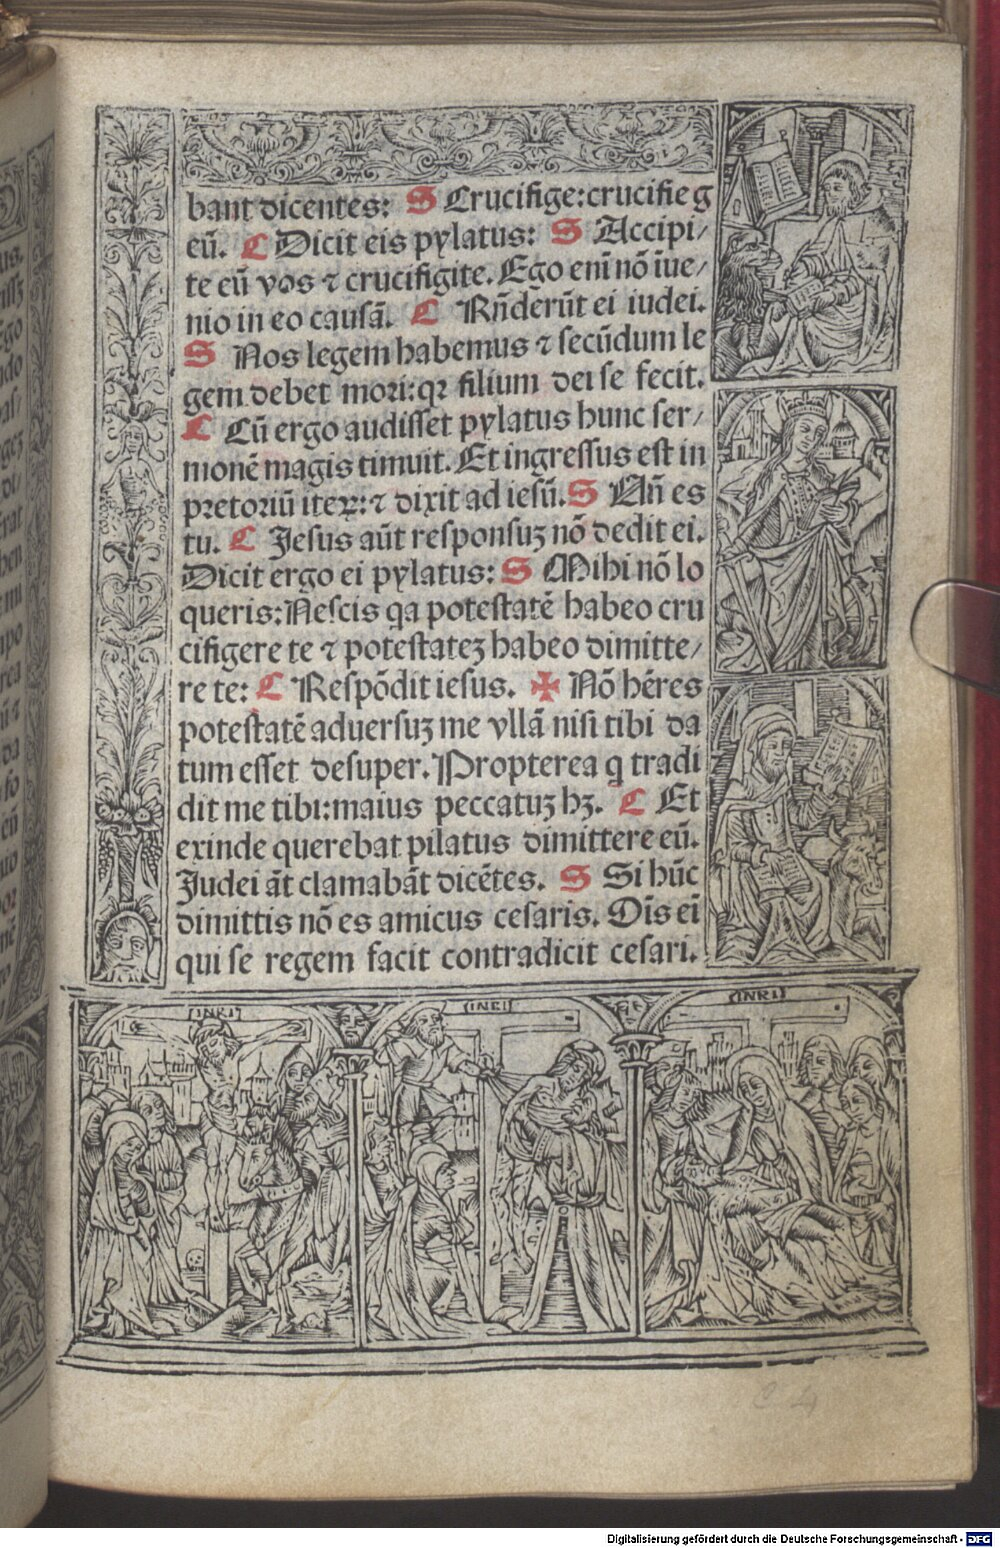 bant dicentes: S Crucifige:crucifie g
eū. C Dicit eis pylatus: S Accipi/
te eū vos ⁊ crucifigite. Ego eni̅ nō īue/
nio in eo causā. C Rn̄derūt ei iudei.
S Nos legem habemus ⁊ secūdum le
gem debet mori:qꝛ filium dei se fecit.
C Cū ergo audisset pylatus hunc ser/
monē magis timuit. Et ingressus est in
pretoriū iteꝝ:⁊ dixit ad iesū. S Un̄ es
tu. C Jesus aūt responsuꝫ nō dedit ei.
Dicit ergo ei pylatus: S Mihi nō lo
queris:Nescis qa potestatē habeo cru
cifigere te ⁊ potestateꝫ habeo dimitte/
re te: C Respōdit iesus. ✠ Nō hēres
potestatē aduersuꝫ me vllā nisi tibi da
tum esset desuper. Propterea q̄ tradi
dit me tibi:maius peccatuꝫ hꝫ. C Et
exinde querebat pilatus dimittere eū.
Judei āt clamabāt dicētes. S Si hūc
dimittis nō es amicus cesaris. Oīs eī
qui se regem facit contradicit cesari.
INRI
INRI
INRI
c 4
Digitalisierung gefördert durch die Deutsche Forschungsgemeinschaft - DFG